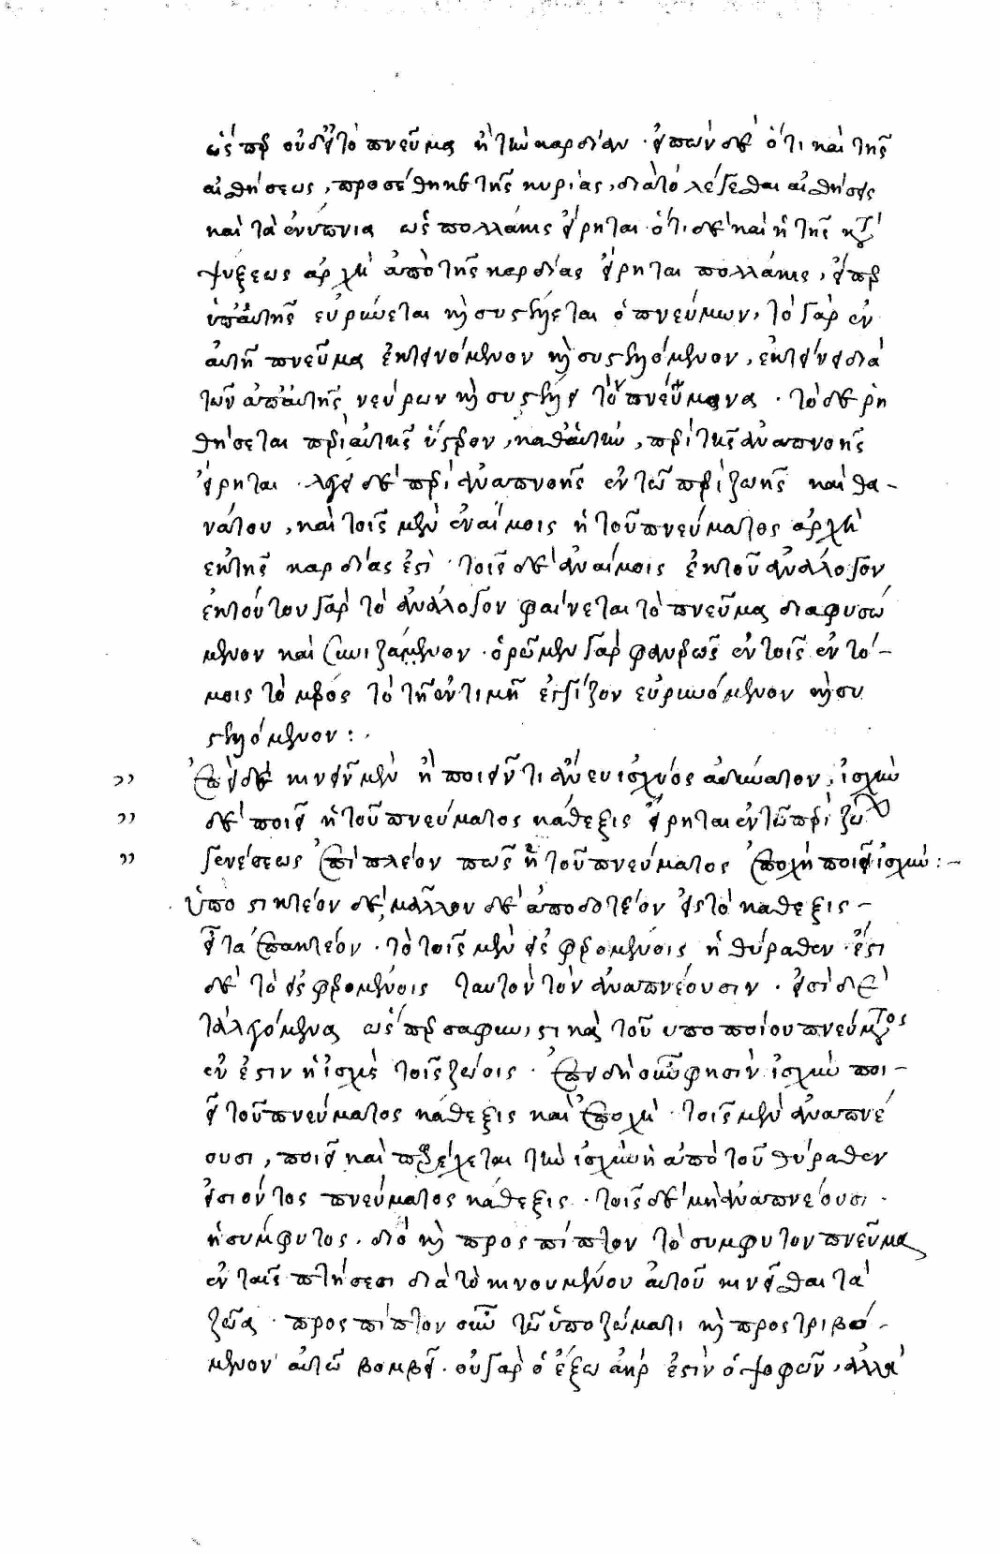 ὥσπερ οὐδὲ τὸ πνεῦμα ἢ τὴν καρδίαν · εἰπὼν δὲ ὅτι καὶ τῆς
αἰσθήσεως, προσέθηκε τῆς κυρίας, διὰ τὸ λέγεσθαι αἰσθήσεις
καὶ τὰ ἐνύπνια ὡς πολλάκις εἴρηται · ὅτι δὲ καὶ ἡ τῆς κατα
ψύξεως ἀρχὴ ἀπὸ τῆς καρδίας εἴρηται πολλάκις, εἴπερ
ὑπ' αὐτῆς εὐρύνεται καὶ συστέλλεται ὁ πνεύμων, τὸ γὰρ ἐν
αὐτῇ πνεῦμα ἐκτεινόμενον καὶ συστελλόμενον, ἐκτείνει διὰ
τῶν ἀπ' αὐτῆς νεύρων καὶ συστέλλει τὸν πνεύμονα · τὸ δὲ ῥη
θήσεται περὶ αὐτῆς ὕστερον, καθ' αὑτὴν, περὶ τῆς ἀναπνοῆς
εἴρηται · λέγει δὲ περὶ ἀναπνοῆς ἐν τῷ περὶ ζωῆς καὶ θα-
νάτου, καὶ τοῖς μὲν ἐναίμοις ἡ τοῦ πνεύματος ἀρχὴ
ἐκ τῆς καρδίας ἐστὶ · τοῖς δὲ ἀναίμοις ἐκ τοῦ ἀνάλογον
ἐκ τούτου γὰρ τὸ ἀνάλογον φαίνεται τὸ πνεῦμα διαφυσώ
μενον καὶ συνιζάνον · ὁρῶμεν γὰρ φανερῶς ἐν τοῖς ἐντό-
μοις τὸ μέρος τὸ τῇ ἐντιμῇ ἐγγίζον εὐρυνόμενον καὶ συ
στελλόμενον :
Ἐπεὶ δὲ κινεῖν μὲν ἢ ποιεῖν τι ἄνευ ἰσχύος ἀδύνατον, ἰσχὺν
δὲ ποιεῖ ἡ τοῦ πνεύματος κάθεξις εἴρηται ἐν τῷ περὶ ζώων
γενέσεως ἐπὶ πλέον πῶς ἡ τοῦ πνεύματος ἐποχὴ ποιεῖ ἰσχύν : -
ὑποστικτέον δὲ, μᾶλλον δὲ ἀποδοτέον εἰς τὸ κάθεξις -
εἶτα ἐπακτέον · τὸ τοῖς μὲν εἰσφερομένοις ἡ θύραθεν · ἔστι
δὲ τὸ εἰσφερομένοις ταυτὸν τῷ ἀναπνέουσιν · εἰσὶ δὲ
τὰ λεγόμενα ὥσπερ σαφηνιστικὰ τοῦ ὑπὸ ποίου πνεύματος
εὖ ἐστιν ἡ ἰσχὺς τοῖς ζώοις · ἐπειδὴ οὖν φησὶν ἰσχὺν ποι-
εῖ τοῦ πνεύματος κάθεξις καὶ ἐποχὴ · τοῖς μὲν ἀναπνέ
ουσι, ποιεῖ καὶ παρέχεται τὴν ἰσχὺν ἡ ἀπὸ τοῦ θύραθεν
εἰσιόντος πνεύματος κάθεξις · τοῖς δὲ μὴ ἀναπνέουσι ·
ἡ σύμφυτος · διὸ καὶ προσπίπτον τὸ σύμφυτον πνεῦμα
ἐν ταῖς πτήσεσι διὰ τὸ κινουμένου αὐτοῦ κινεῖσθαι τὰ
ζῶα · προσπίπτον οὖν τῷ ὑποζώματι καὶ προστριβό-
μενον αὐτῷ βομβεῖ · οὐ γὰρ ὁ ἔξω ἀήρ ἐστιν ὁ ψοφῶν, ἀλλὰ